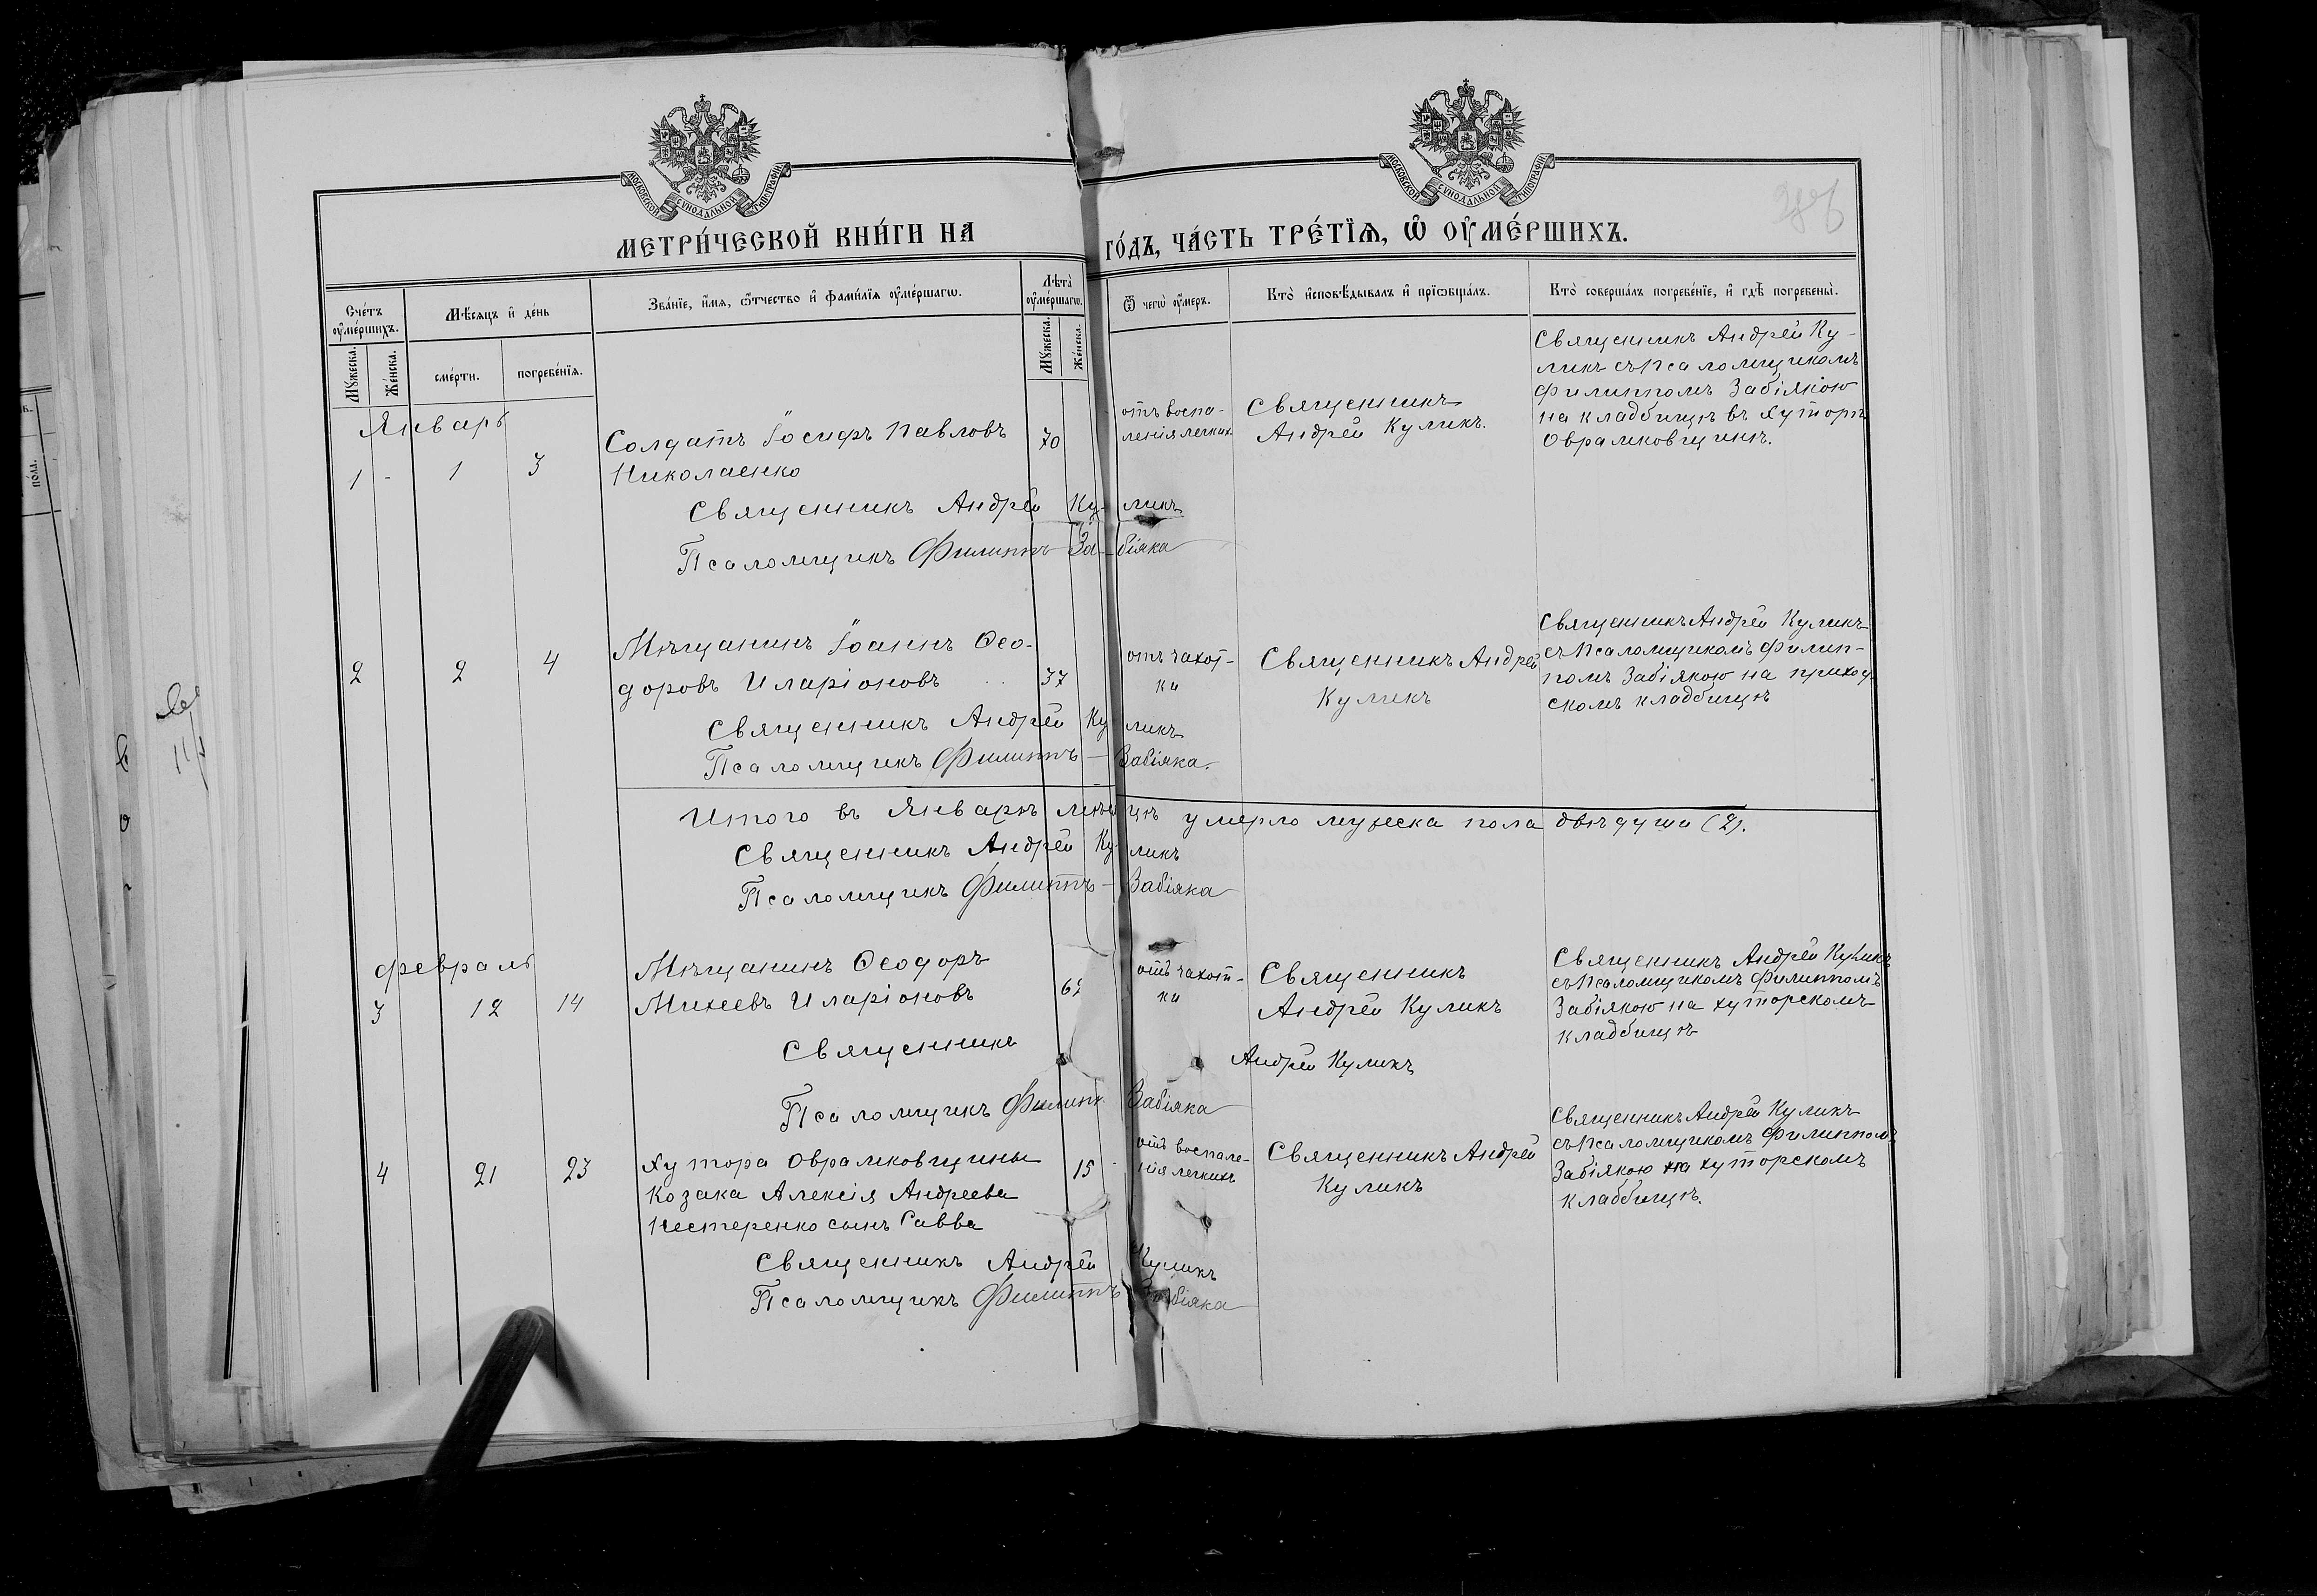 МОСКОВСКОЙ СѴНОДАЛЬНОЙ ТИПОГРАФІИ
МОСКОВСКОЙ СѴНОДАЛЬНОЙ ТИПОГРАФІИ
МЕТРИ́ЧЕСКОЙ КНИ́ГИ НА
ГО́ДЪ, ЧА́СТЬ ТРЕ́ТЇѦ, Ѡ҆ ОУ҆МЕ́РШИХЪ.
Сче́тъ
оу҆ме́ршихъ.
Мѣ́сяцъ и҆ де́нь
Зва́нїе, и҆́мя, ѻ҆́тчество и҆ фами́лїя оу҆ме́ршагѡ.
Лѣ́та
оу҆ме́ршагѡ.
Ѿ чегѡ̀ оу҆́меръ.
Кто̀ и҆сповѣ́дывалъ и҆ прїѡбща́лъ.
Кто̀ соверша́лъ погребе́нїе, и҆ гдѣ̀ погребены̀.
Мꙋ́жеска.
Же́нска.
сме́рти.
погребе́нїя.
Мꙋ́жеска.
Же́нска.
Январь
1 - 1 3
Солдатъ Іосифъ Павловъ
Николаенко
70
отъ воспа-
ленія легких.
Священникъ
Андрей Куликъ.
Священникъ Андрей Ку-
ликъ съ Псаломщикомъ
Филиппомъ Забіякою
на кладбищѣ въ хуторѣ
Оврамковщинѣ.
Священникъ Андрей Ку-ликъ
Псаломщикъ Филиппъ За-біяка
2 2 4
Мѣщанинъ Іоаннъ Ѳео-
доровъ Иларіоновъ
37
отъ чахот-
ки
Священникъ Андрей
Куликъ
Священникъ Андрей Куликъ
съ Псаломщикомъ Филип-
помъ Забіякою на приход
скомъ кладбищѣ
Священникъ Андрей Ку ликъ
Псаломщикъ Филиппъ - Забіяка.
Итого въ Январѣ мѣсяцѣ умерло мужеска пола двѣ души (2).
Священникъ Андрей Ку ликъ
Псаломщикъ Филиппъ - Забіяка
Февраль
3 12 14
Мѣщанинъ Ѳеодоръ
Михеевъ Иларіоновъ
62
отъ чахот-
ки
Священникъ
Андрей Куликъ
Священникъ Андрей Куликъ
съ Псаломщикомъ Филиппомъ
Забіякою на хуторскомъ
кладбищѣ
Священникъ Андрей Куликъ
Псаломщикъ Филипп. Забіяка
4 21 23
Хутора Оврамковщины
Козака Алексія Андреева
Нестеренко сынъ Савва
15 -
отъ воспале-
нія легкихъ
Священникъ Андрей
Куликъ
Священникъ Андрей Куликъ
съ Псаломщикомъ Филиппомъ
Забіякою на хуторскомъ
кладбищѣ.
Священникъ Андрей Куликъ
Псаломщикъ Филиппъ Забіяка